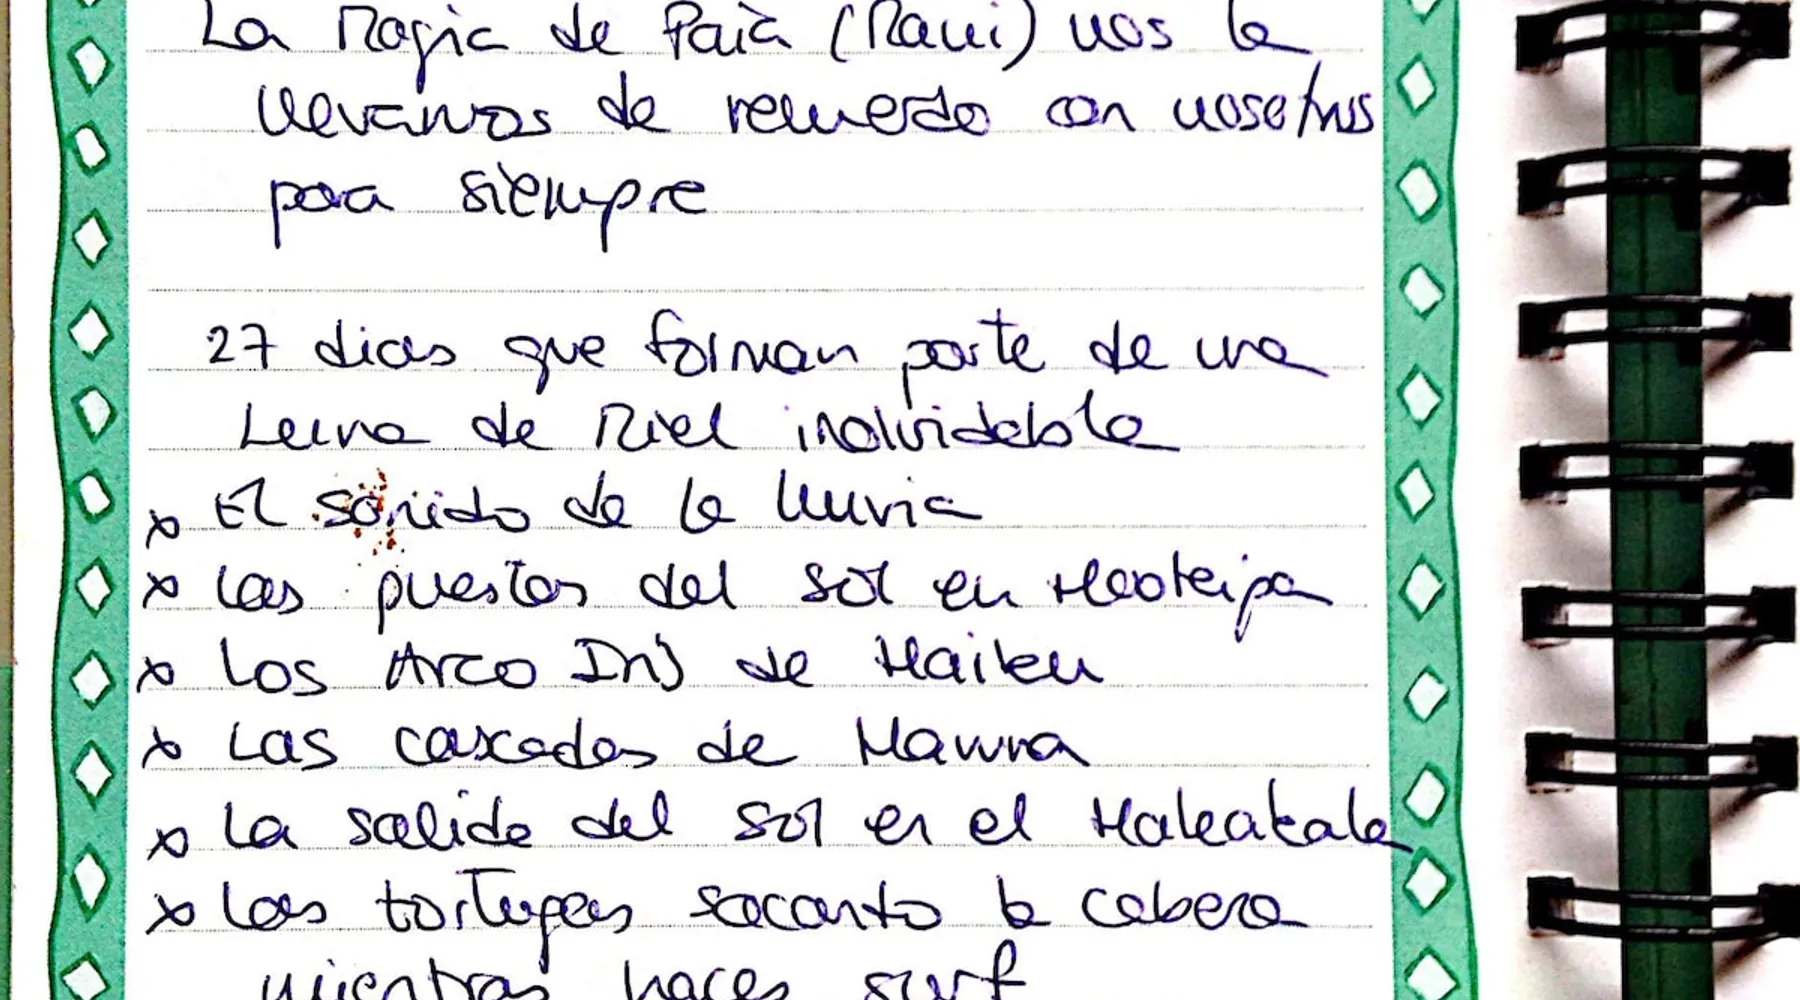 La Magia de Paia (Maui) nos la
llevamos de recuerdo con nosotros
para siempre
27 dias que forman parte de una
Luna de Miel inolvidable
x El sonido de la lluvia
x Las puestas del sol en Hookipa
x Los Arco Iris de Haiku
x Las cascadas de Hanna
x La salida del sol en el Haleakala
x Las tortugas sacando la cabeza
mientras haces surf